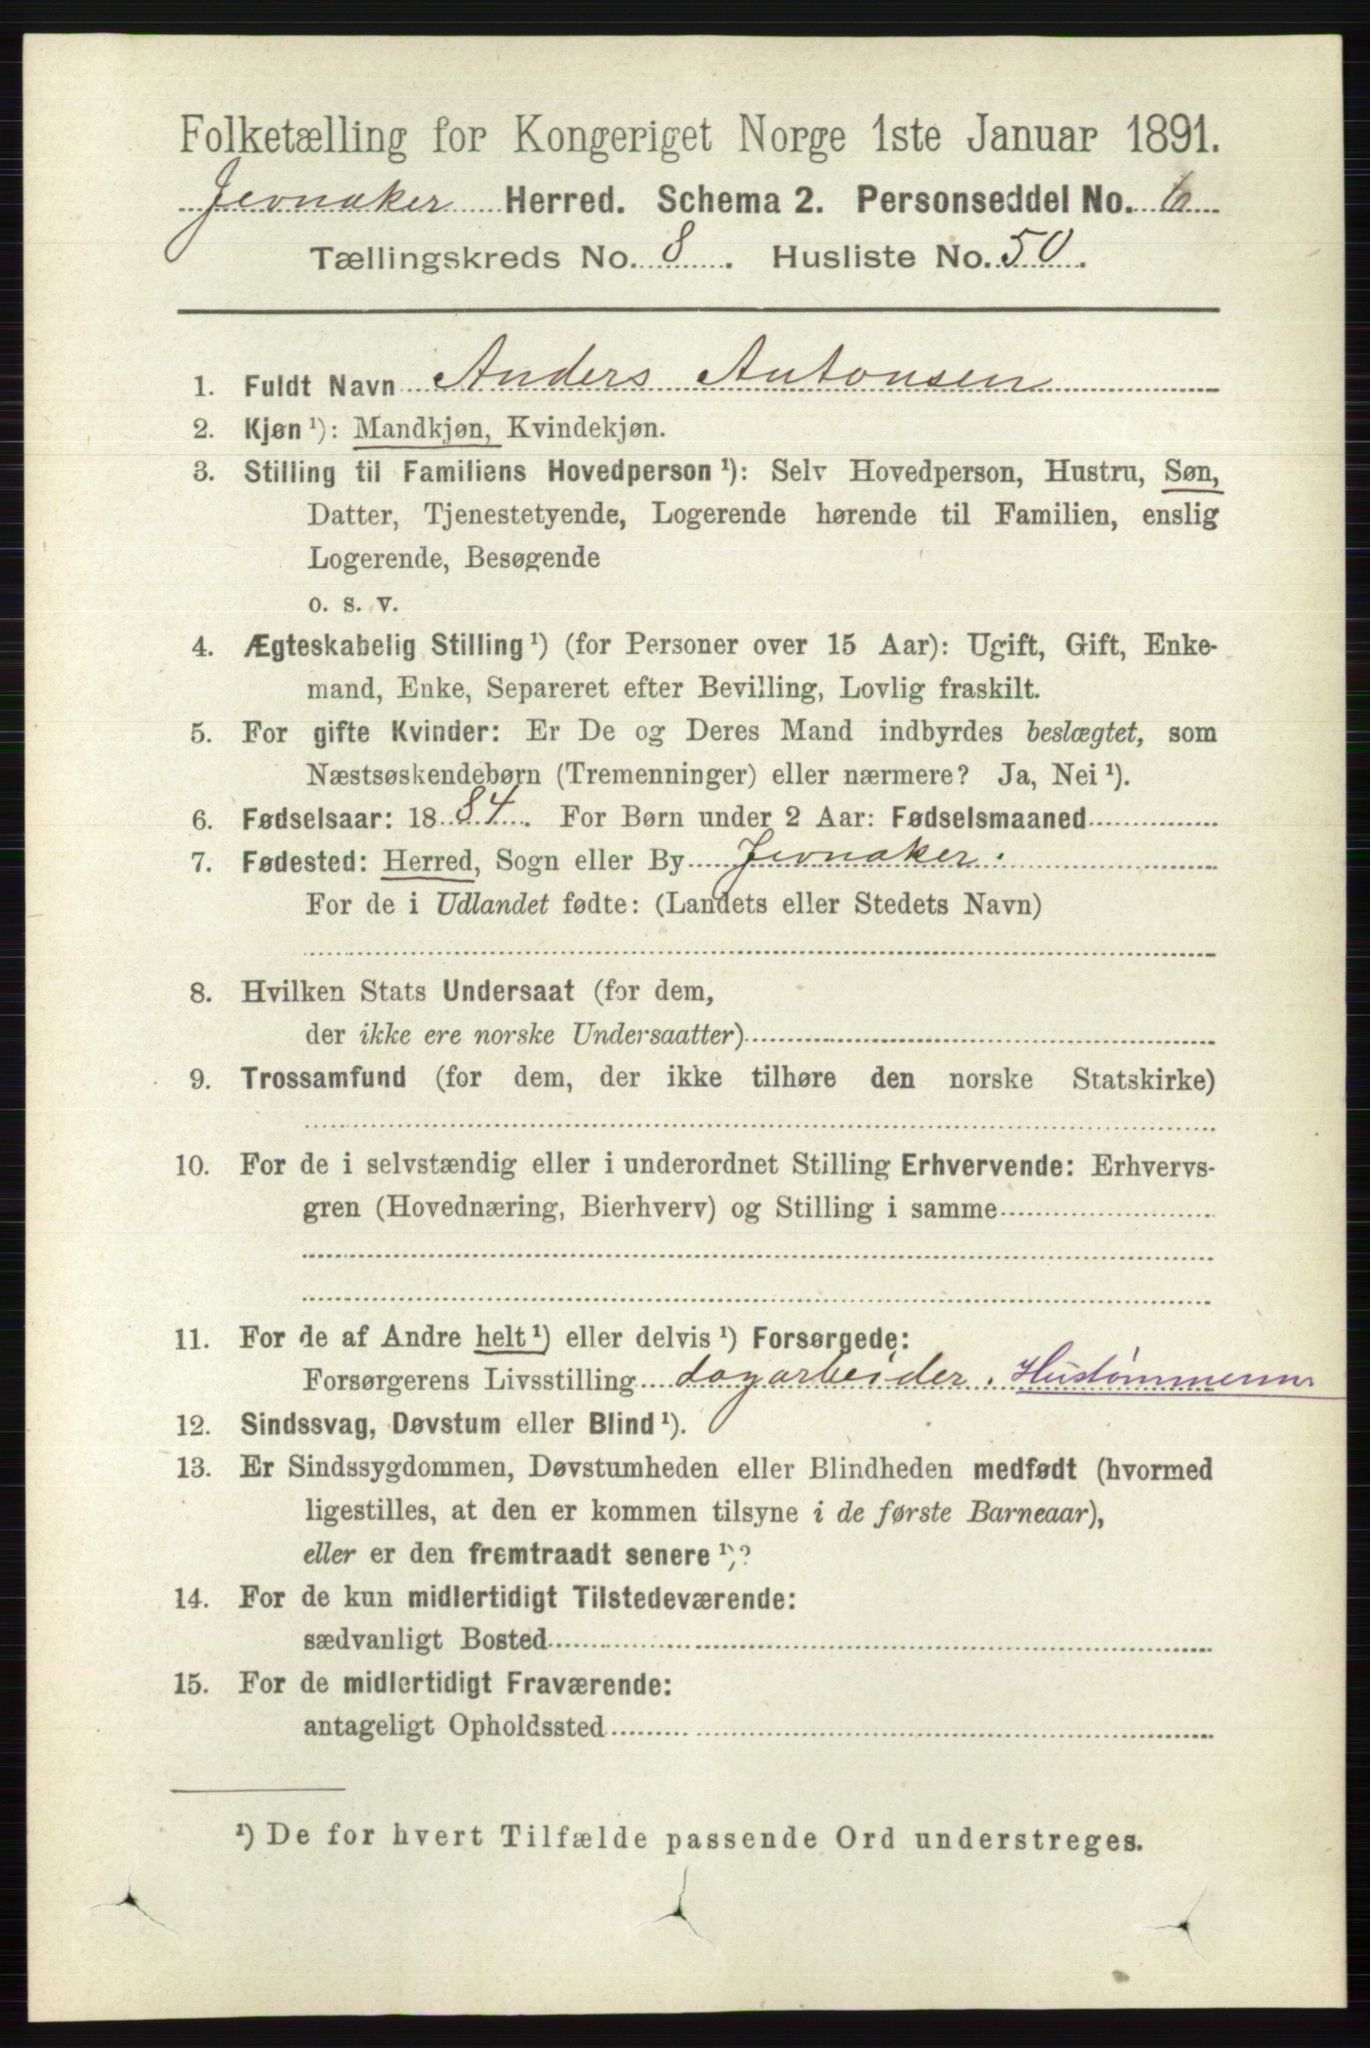 Folketælling for Kongeriget Norge 1ste Januar 1891.
Jevnaker Herred. Schema 2. Personseddel No. 6
Tællingskreds No. 8. Husliste No. 50.
1. Fuldt Navn Anders Antonsen
2. Kjøn ¹): Mandkjøn, Kvindekjøn.
3. Stilling til Familiens Hovedperson ¹): Selv Hovedperson, Hustru, Søn,
Datter, Tjenestetyende, Logerende hørende til Familien, enslig
Logerende, Besøgende
o. s. v.
4. Ægteskabelig Stilling ¹) (for Personer over 15 Aar): Ugift, Gift, Enke-
mand, Enke, Separeret efter Bevilling, Lovlig fraskilt.
5. For gifte Kvinder: Er De og Deres Mand indbyrdes beslægtet, som
Næstsøskendebørn (Tremenninger) eller nærmere? Ja, Nei ¹).
6. Fødselsaar: 1884. For Børn under 2 Aar: Fødselsmaaned
7. Fødested: Herred, Sogn eller By Jevnaker.
For de i Udlandet fødte: (Landets eller Stedets Navn)
8. Hvilken Stats Undersaat (for dem,
der ikke ere norske Undersaatter)
9. Trossamfund (for dem, der ikke tilhøre den norske Statskirke)
10. For de i selvstændig eller i underordnet Stilling Erhvervende: Erhvervs-
gren (Hovednæring, Bierhverv) og Stilling i samme
11. For de af Andre helt ¹) eller delvis ¹) Forsørgede:
Forsørgerens Livsstilling dagarbeider. Hustømmerm
12. Sindssvag, Døvstum eller Blind ¹).
13. Er Sindssygdommen, Døvstumheden eller Blindheden medfødt (hvormed
ligestilles, at den er kommen tilsyne i de første Barneaar),
eller er den fremtraadt senere ¹)?
14. For de kun midlertidigt Tilstedeværende:
sædvanligt Bosted
15. For de midlertidigt Fraværende:
antageligt Opholdssted
¹) De for hvert Tilfælde passende Ord understreges.